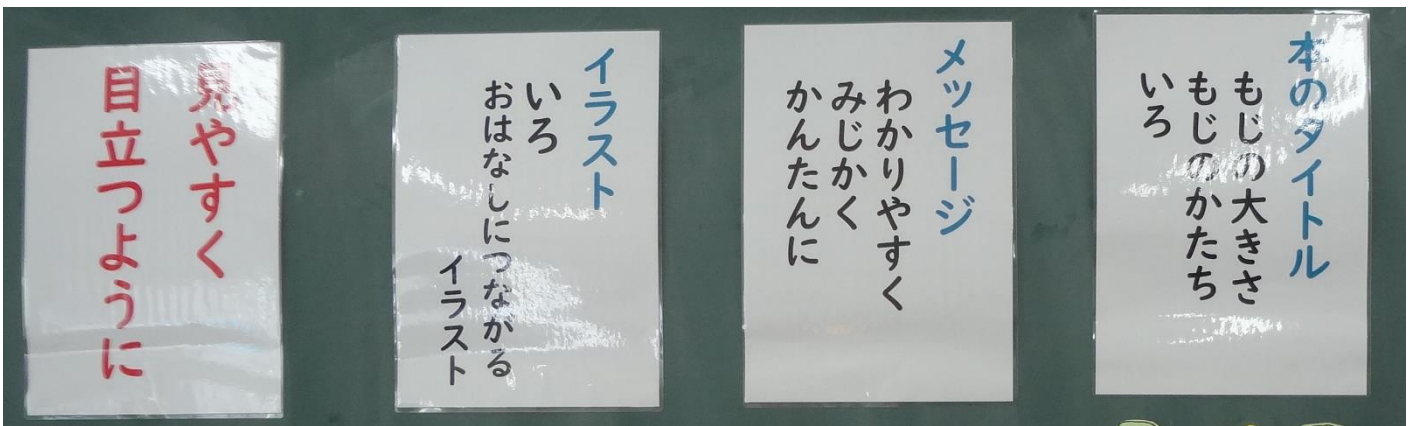 本のタイトル
もじの大きさ
もじのかたち
いろ
メッセージ
わかりやすく
みじかく
かんたんに
イラスト
いろ
おはなしにつながる
イラスト
見やすく
目立つように